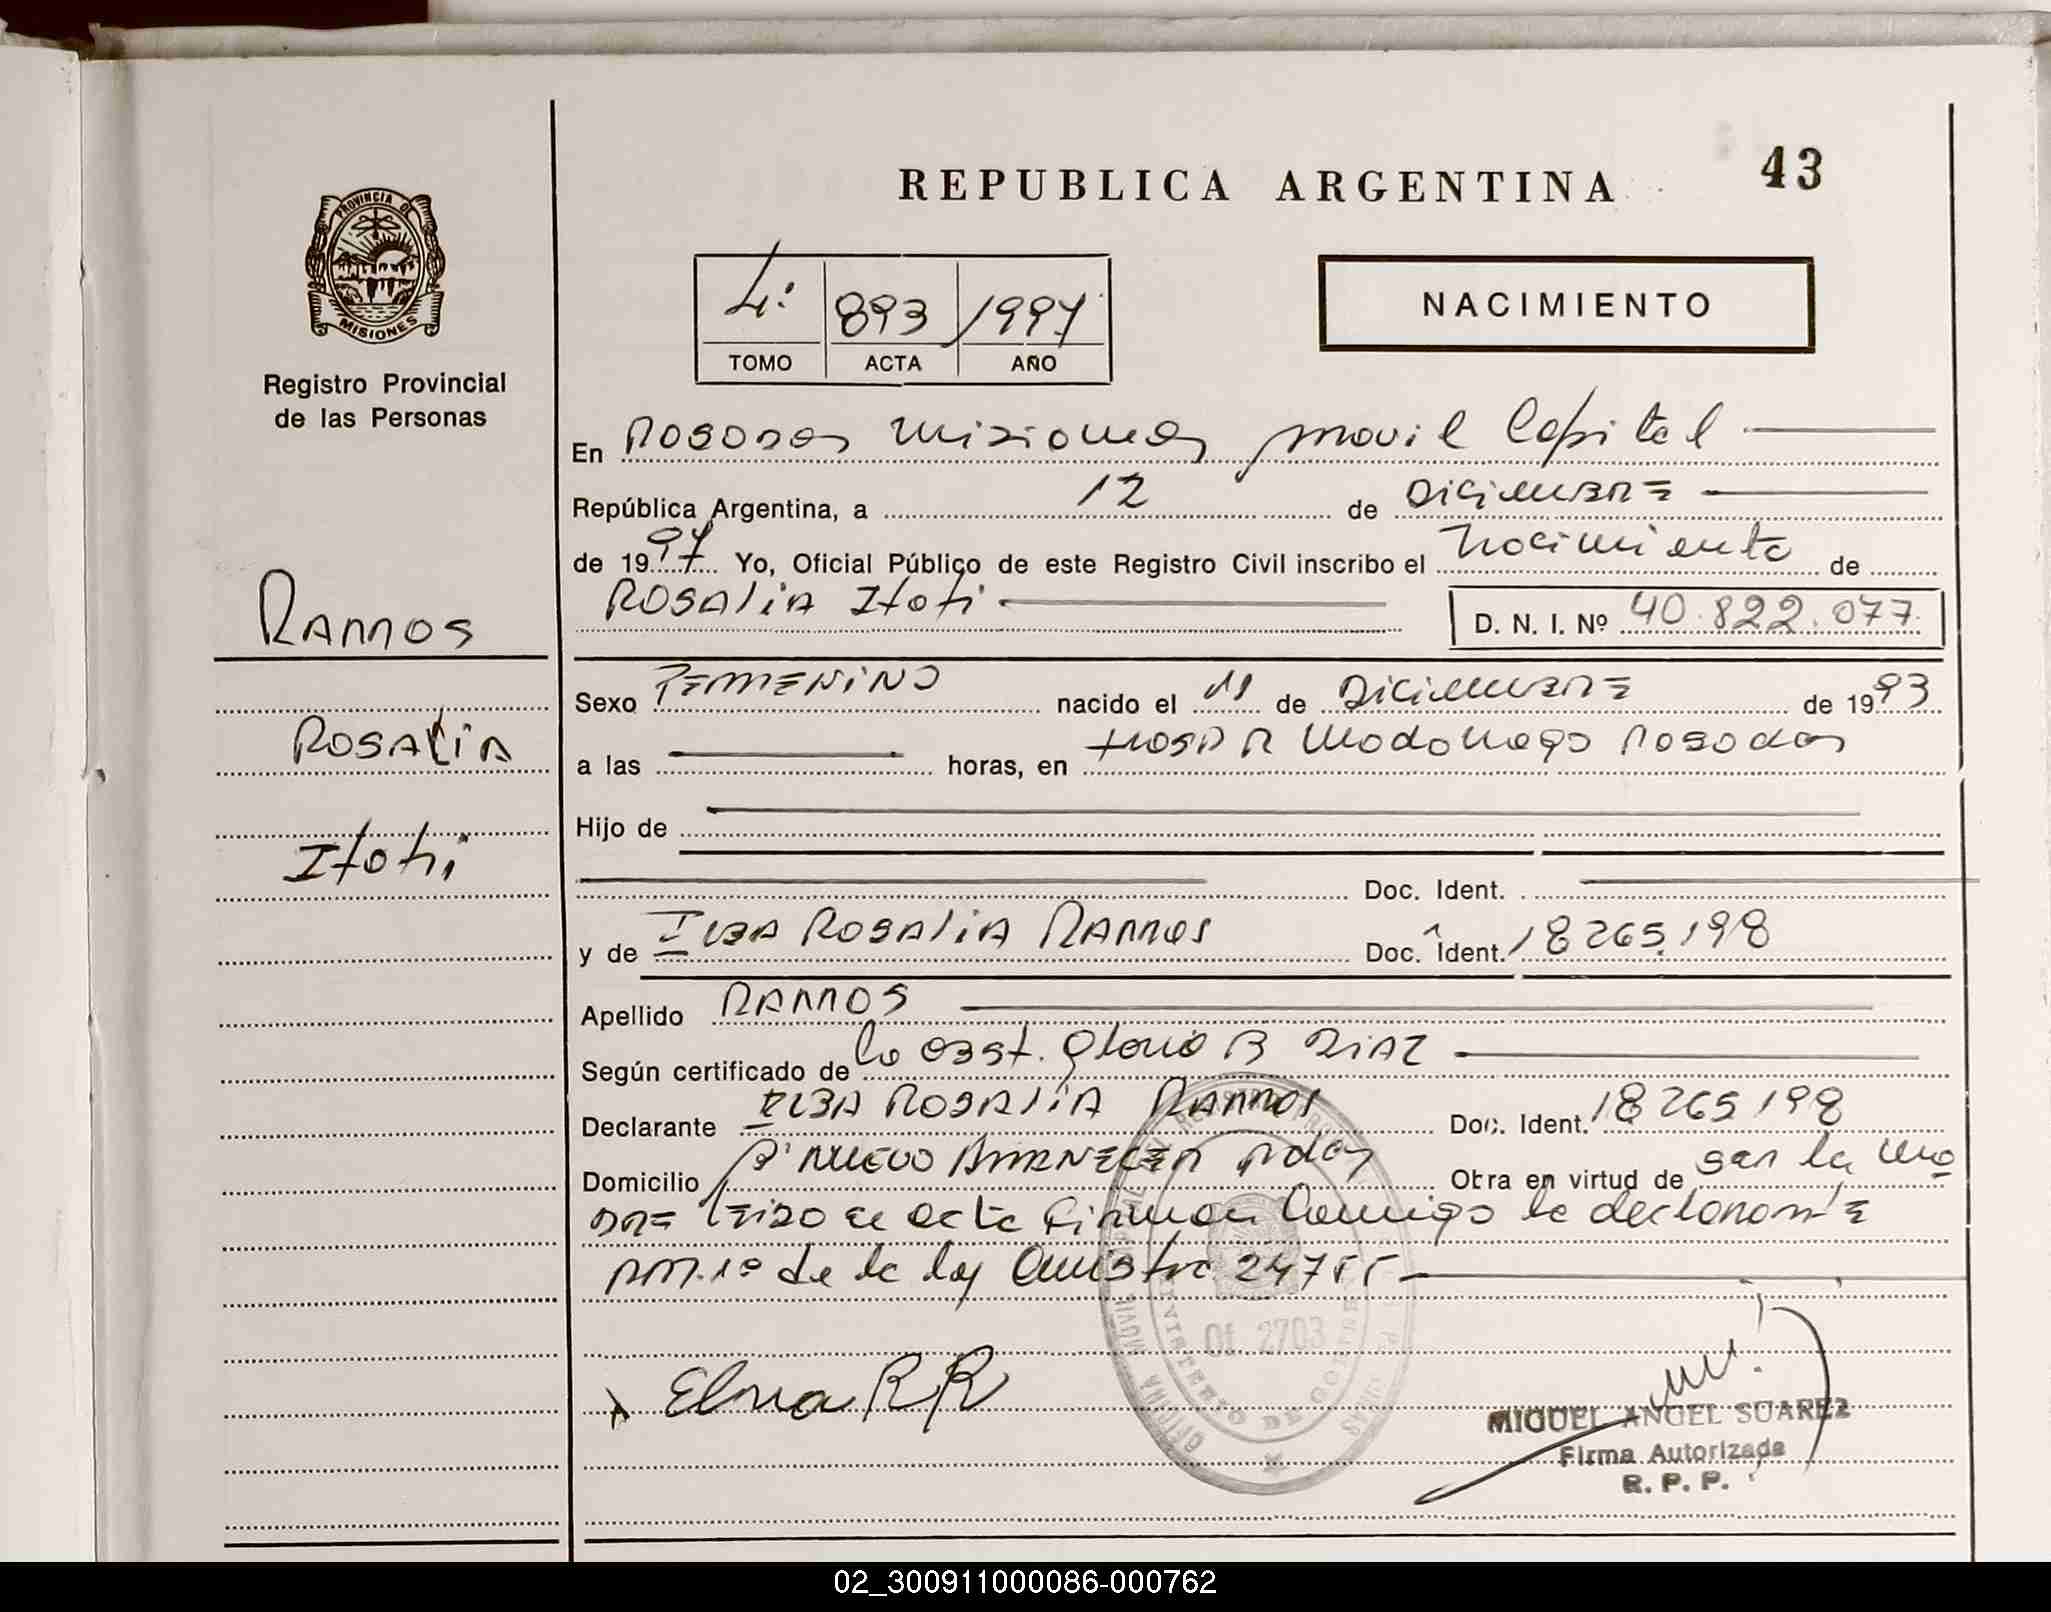 PROVINCIA DE
MISIONES
Registro Provincial
de las Personas
Ramos
Rosalia
Itatí
REPUBLICA ARGENTINA
43
4º 893 1997
TOMO ACTA AÑO
NACIMIENTO
En Posadas Misiones movil Capital
República Argentina, a 12 de Diciembre
de 1997 Yo, Oficial Público de este Registro Civil inscribo el Nacimiento de
Rosalia Itatí D. N. I. Nº 40.822.077
Sexo Femenino nacido el 11 de Diciembre de 1993
a las horas, en Hosp R Madariaga Posadas
Hijo de
Doc. Ident.
y de Elba Rosalia Ramos Doc. Ident. 18265198
Apellido Ramos
Según certificado de la Obst. Gloria B Diaz
Declarante Elba Rosalia Ramos Doc. Ident. 18265198
Domicilio Bº Nuevo Amanecer Pdas Otra en virtud de ser la ma
dre leido el acta firman conmigo la declarante
Art. 1º de la ley 24755
OFICINA MOVIL
MINISTERIO DE GOBIERNO
Of. 2703
Elva R R
MIGUEL ANGEL SUAREZ
Firma Autorizada
R. P. P.
02_300911000086-000762